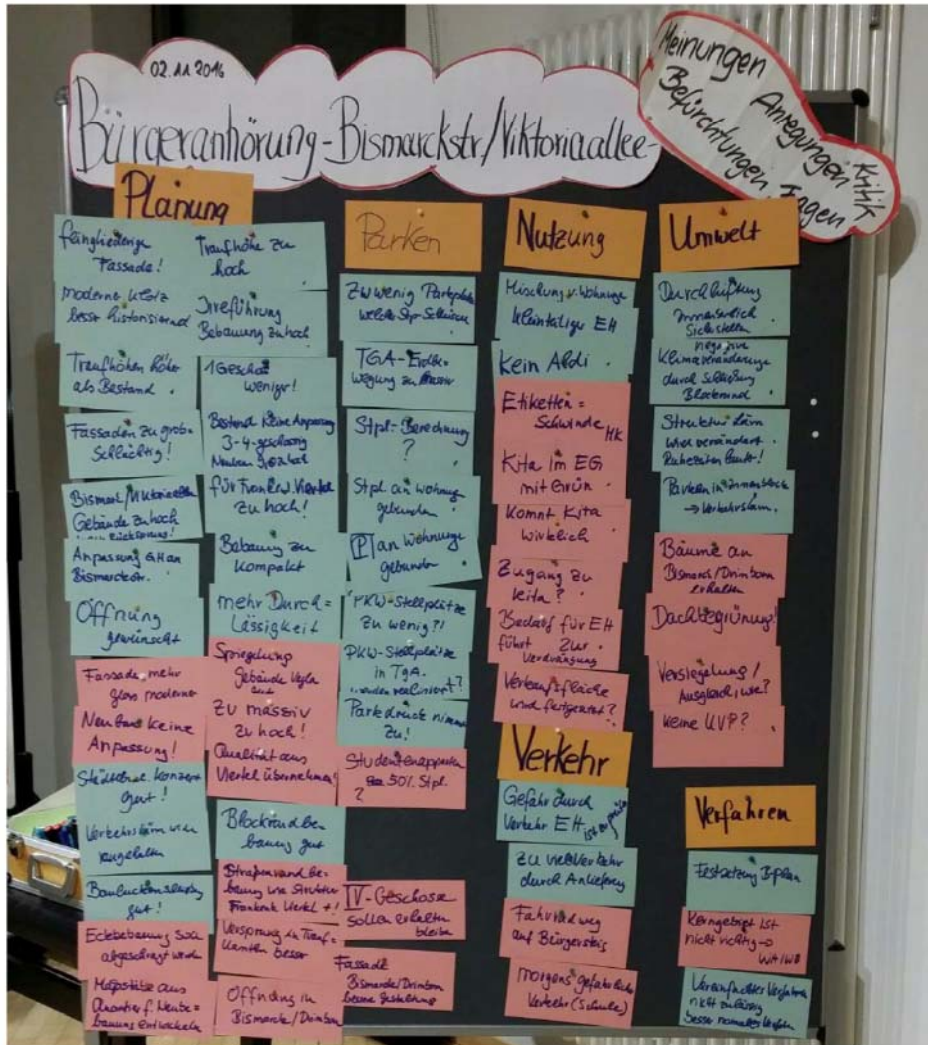 02.11.2016
Bürgeranhörung-Bismarckstr/Viktoriaallee-
Meinungen
Anregungen
Befürchtungen
Kritik
Fragen
Planung
feingliedrige
Fassade!
moderne Klotz
besser historisierend
Traufhöhen höher
als Bestand
Fassaden zu grob-
schlächtig!
Bismarck/Viktoriaallee
Gebäude zu hoch
Anpassung GH an
Bismarckstr.
Öffnung
gewünscht
Fassade mehr
Glas moderner
Neubau keine
Anpassung!
Städtebaul. Konzept
gut!
Verkehrslärm wird
Baulückenschließung
gut!
Eckbebauung soll
abgeschrägt werden
Maßstäbe aus
bauung entwickeln
Traufhöhe zu
hoch
Irreführung
Bebauung zu hoch
1 Geschoß
weniger!
Bestand keine Anpassung
3-4-geschossig
für Frankenb. Viertel
zu hoch!
Bebauung zu
kompakt
mehr Durch=
Lässigkeit
Spiegelung
Gebäude
zu massiv
zu hoch!
Qualität aus
Viertel übernehmen!
Blockrandbe-
bauung gut
Straßenrandbe-
bauung wie Struktur
Frankenb. Viertel +!
Versprung in Trauf=
kanten besser
Öffnung in
Bismarck/Drimborn
Parken
Zu wenig Parkplätze
TGA-Erdbe-
wegung zu massiv
Stpl-Berechnung
?
Stpl an Wohnung
gebunden
[P] an Wohnung
gebunden
PKW-Stellplätze
zu wenig?!
PKW-Stellplätze
in TGA.
werden realisiert?
Parkdruck nimmt
zu!
Studentenapparten
50% Stpl.
?
IV-Geschosse
sollen erhalten
bleiben
Fassade
Bismarck/Drimborn
Nutzung
Mischung v. Wohnungen
kleinteiliger EH
Kein Aldi
Etiketten=
Schwindel MK
Kita im EG
mit Grün
Kommt Kita
wirklich
Zugang zu
Kita?
Bedarf für EH
führt zur
Verdrängung
Verkaufsfläche
wird festgesetzt?
Verkehr
Gefahr durch
Verkehr EH
zu viel Verkehr
durch Anlieferg
Fahrradweg
auf Bürgersteig
morgens gefährlicher
Verkehr (Schule)
Umwelt
Durchlüftung
Sicherstellen
negative
Klimaveränderung
durch Schließung
Blockrand
Struktur Lärm
wird verändert
Parken im Innenblock
→ Verkehrslärm.
Bäume an
Bismarck/Drimborn
erhalten
Dachbegrünung!
Versiegelung/
Ausgleich, wie?
Keine UVP?
Verfahren
Festsetzung Bplan
Kerngebiet ist
nicht richtig →
Vereinfachtes Verfahren
nicht zulässig
besser normales Verfahren